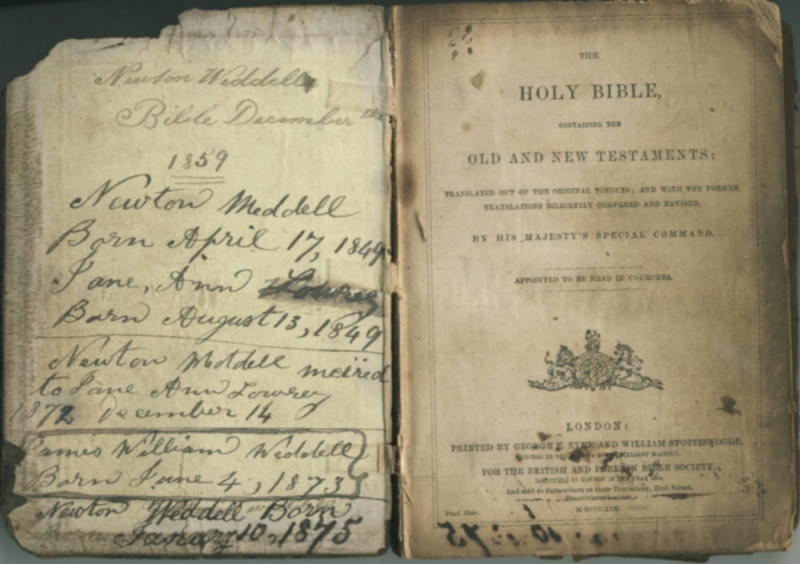 Newton Weddell
Bible December
1859
Newton Meddell
Born April 17, 1849
Jane, Ann Lowrey
Born August 13, 1849
Newton Meddell meried
to Jane Ann Lowrey
1872 December 14
James William Weddell
Born June 4, 1873
Newton Weddell Born
Janary 10, 1875
THE
HOLY BIBLE,
CONTAINING THE
OLD AND NEW TESTAMENTS:
TRANSLATED OUT OF THE ORIGINAL TONGUES; AND WITH THE FORMER
TRANSLATIONS DILIGENTLY COMPARED AND REVISED,
BY HIS MAJESTY'S SPECIAL COMMAND.
APPOINTED TO BE READ IN CHURCHES.
LONDON:
PRINTED BY GEORGE E. EYRE AND WILLIAM SPOTTISWOODE,
FOR THE BRITISH AND FOREIGN BIBLE SOCIETY,
And sold to Subscribers at their Depository, Earl Street,